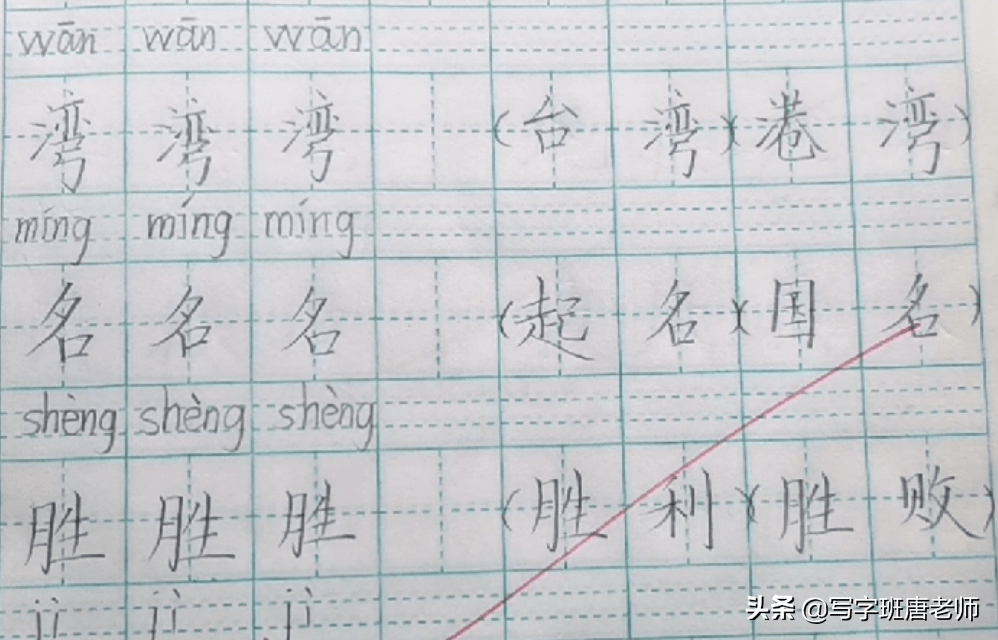 wān wān wān
湾 湾 湾 (台 湾)(巷 湾)
míng míng míng
名 名 名 (起 名)(国 名)
shèng shèng shèng
胜 胜 胜 (胜 利)(胜 败)
jì jì jì
头条 @写字班唐老师